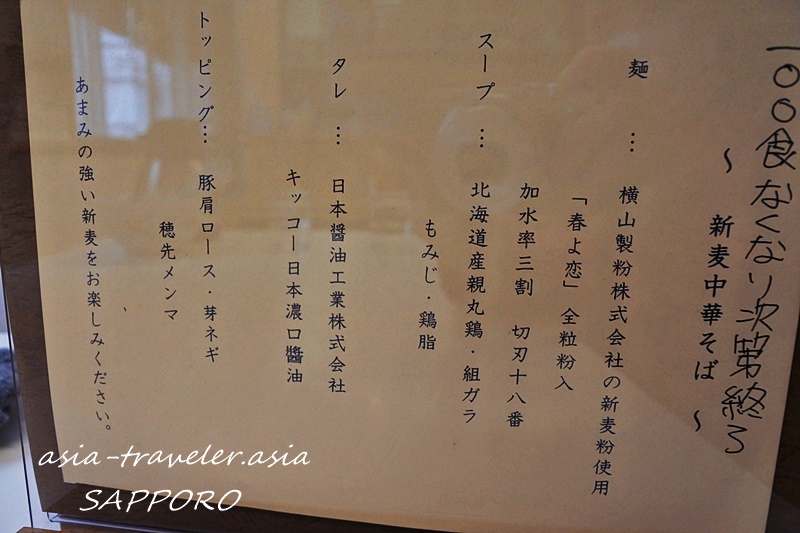 一〇〇食なくなり次第終る
〜 新麦中華そば 〜
麺 … 横山製粉株式会社の新麦粉使用
「春よ恋」全粒粉入
加水率三割 切刃十八番
スープ … 北海道産親丸鶏・組ガラ
もみじ・鶏脂
タレ … 日本醤油工業株式会社
キッコー日本濃口醬油
トッピング… 豚肩ロース・芽ネギ
穂先メンマ
あまみの強い新麦をお楽しみください。
asia-traveler.asia
SAPPORO